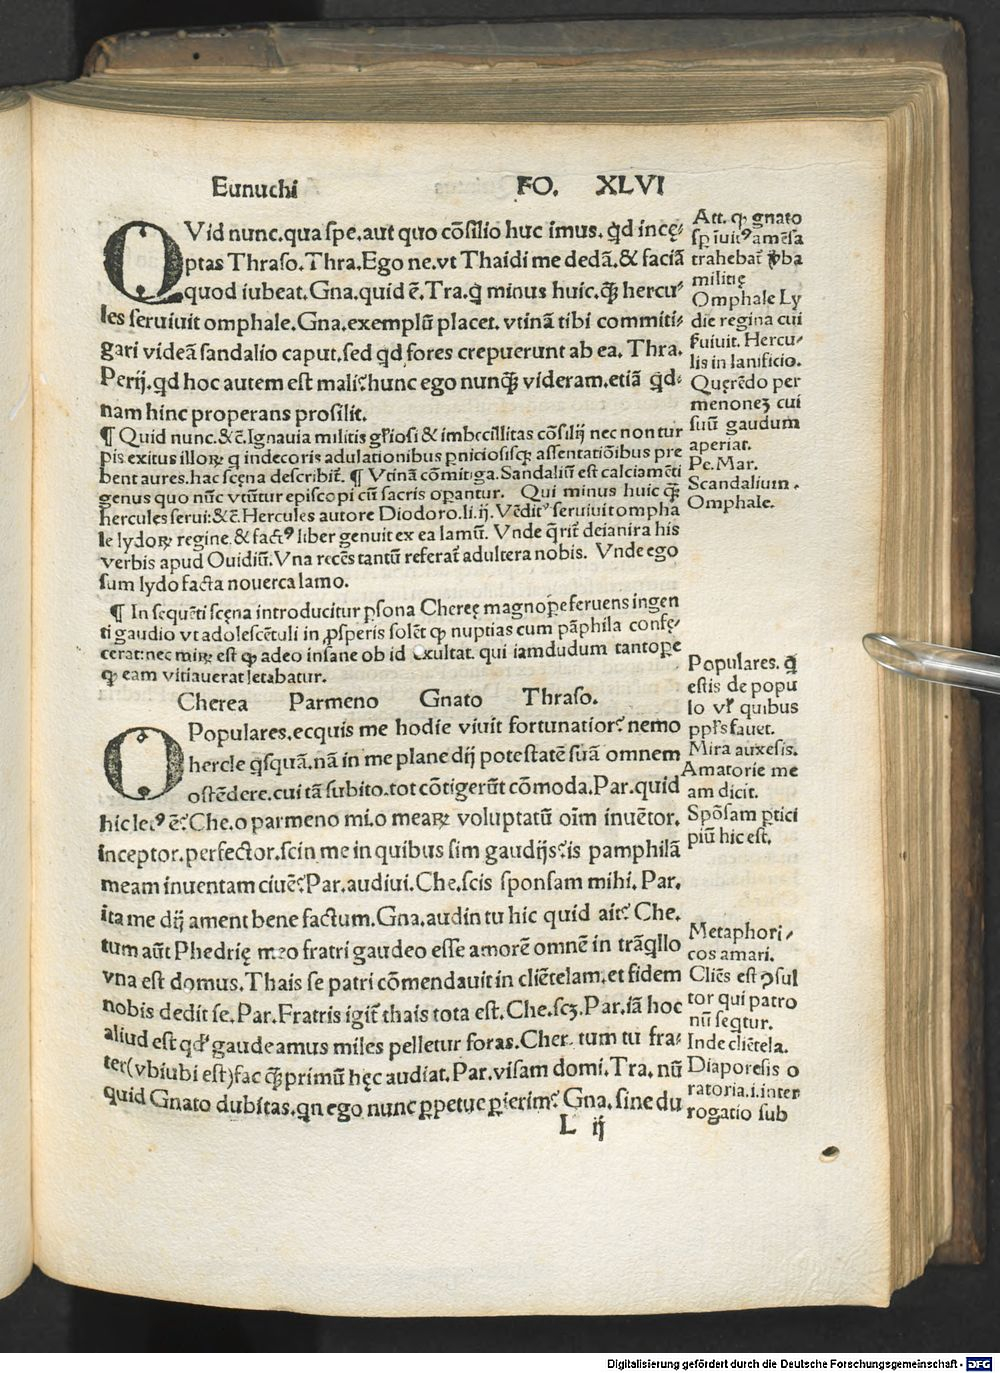 Eunuchi FO. XLVI
QVid nunc.qua spe.aut quo cõsilio huc imus. qd incę⸗
ptas Thraso.Thra.Ego ne.vt Thaidi me dedã.& faciã
quod iubeat.Gna.quid ē.Tra.q̃ minus huic.q̃ꝫ hercu⸗
les seruiuit omphale.Gna.exemplũ placet. vtinã tibi commiti⸗
gari videã sandalio caput.sed qd fores crepuerunt ab ea. Thra.
Perij.qd hoc autem est mali?hunc ego nunq̃ꝫ videram.etiã qd⸗
nam hinc properans prosilit.
¶ Quid nunc.&c̃.Ignauia militis gl̃iosi & imbecillitas cõsilij nec non tur
pis exitus illoꝝ q indecoris adulationibus ꝑniciosisqꝫ assentatiõibus pre
bent aures.hac scęna describit̃. ¶ Vtinã cõmitiga.Sandaliũ est calciamẽti
genus quo nũc vtũtur episcopi cũ sacris opantur. Qui minus huic q̃ꝫ
hercules serui:&c̃.Hercules autore Diodoro.li.ij. Vẽditꝰ seruiuit ompha
le lydoꝝ regine.& factꝰ liber genuit ex ea lamũ. Vnde q̃rit̃ deianira his
verbis apud Ouidiũ.Vna recẽs tantũ referat̃ adultera nobis. Vnde ego
sum lydo facta nouerca lamo.
¶ In sequẽti scęna introducitur ꝑsona Cheręę magnopere feruens ingen
ti gaudio vt adolescẽtuli in ꝓsperis solẽt ꝙ nuptias cum pãphila confę⸗
cerat:nec miꝝ est ꝙ adeo insane ob id exultat. qui iamdudum tantope
ꝙ eam vitiauerat letabatur.
Cherea Parmeno Gnato Thraso.
O Populares.ecquis me hodie viuit fortunatior? nemo
hercle q̃squã.nã in me plane dij potestatẽ suã omnem
ostẽdere.cui tã subito.tot cõtigerũt cõmoda.Par.quid
hic letꝰ ē?Che.o parmeno mi.o meaꝝ voluptatũ oim̃ inuẽtor.
inceptor.perfector.scin me in quibus sim gaudijs?is pamphilã
meam inuentam ciuẽ?Par.audiui.Che.scis sponsam mihi.Par.
ita me dij ament bene factum.Gna.audin tu hic quid ait? Che.
tum aũt Phedrię meo fratri gaudeo esse amorẽ omnẽ in trãqllo
vna est domus.Thais se patri cõmendauit in cliẽtelam.et fidem
nobis dedit se.Par.Fratris igit̃ thais tota est.Che.scꝫ.Par.iã hoc
aliud est qd' gaudeamus miles pelletur foras.Cher. tum tu fra⸗
ter(vbiubi est)fac q̃ꝫ primũ hęc audiat.Par.visam domi.Tra.nũ
quid Gnato dubitas.qn ego nunc ꝑpetuc ꝑierim? Gna.sine du
L ij
Att. ꝙ gnato
sꝑ iuitꝰ a mẽsa
trahebat̃ ꝟba
militię
Omphale Ly
die regina cui
ſuiuit. Hercu⸗
lis in lanificio.
Querẽdo per
menonẽ cui
suũ gaudum
aperiat.
Pe. Mar.
Scandalium.
Omphale.
Populares. q̃
estis de popu
lo vl̃ quibus
ppl̃s fauet.
Mira auxesis.
Amatorie me
am dicit.
Spõsam ꝑtici
piũ hic est.
Metaphori⸗
cos amari.
Cliẽs est ꝯsul
tor qui patro
nũ seqtur.
Inde cliẽtela.
Diaporesis o
ratoria.i.inter
rogatio sub
Digitalisierung gefördert durch die Deutsche Forschungsgemeinschaft - DFG